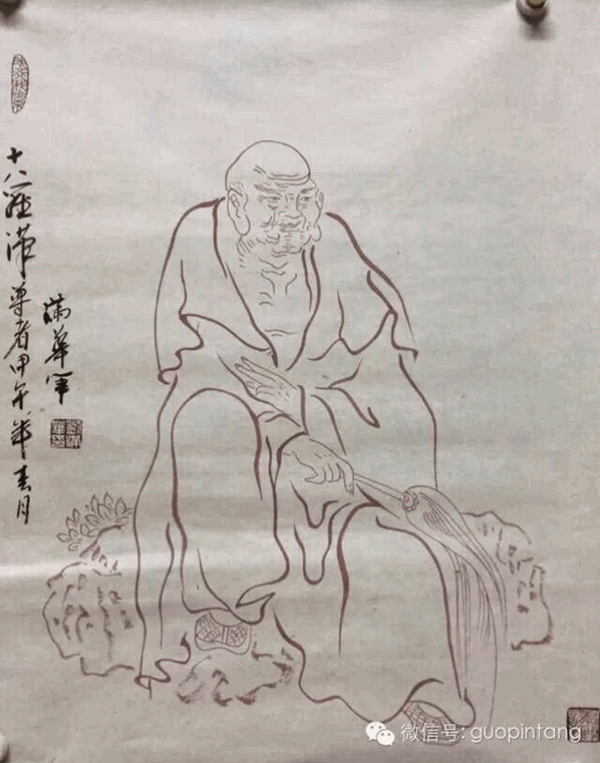 十八羅漢尊者甲午年春月
满華军
微信号: guopintang